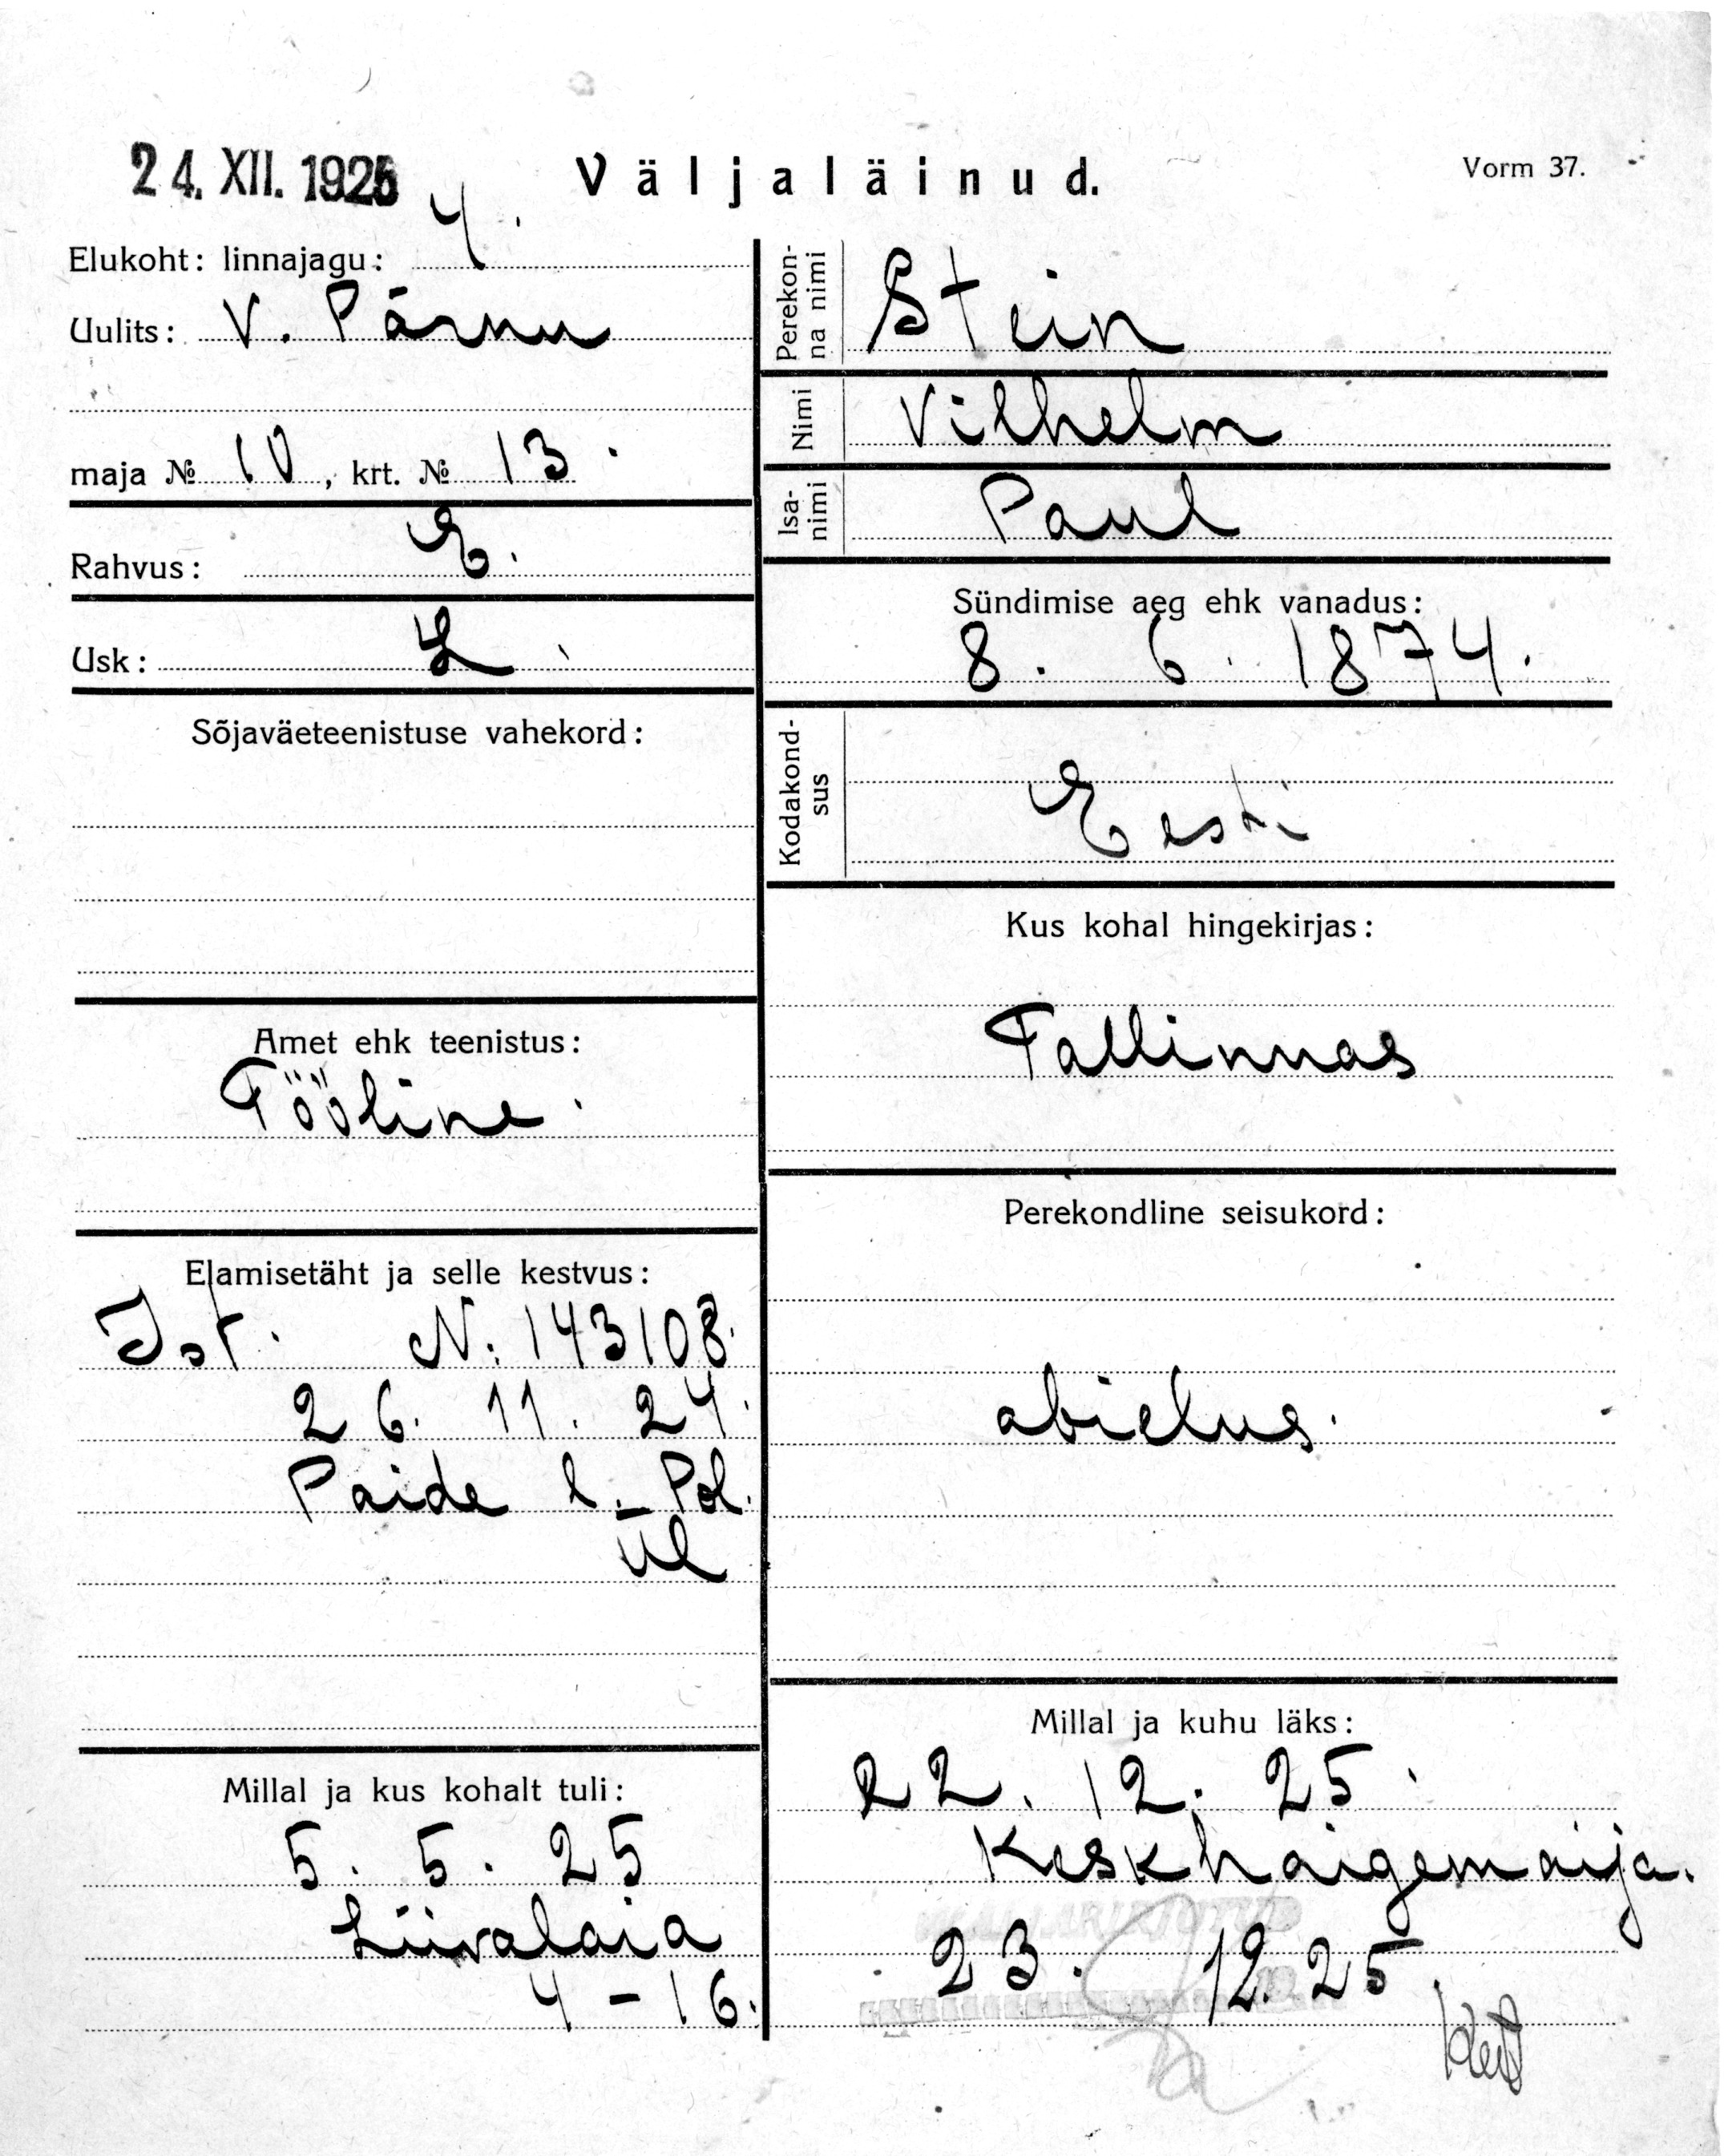 24. XII. 1925
Väljaläinud.
Vorm 37.
Elukoht: linnajagu: 4.
Uulits: V. Pärnu
maja № 10, krt. № 13.
Rahvus: E.
Usk: L.
Sõjaväeteenistuse vahekord:
Amet ehk teenistus:
Tööline.
Elamisetäht ja selle kestvus:
Ist. N: 143108.
26. 11. 24.
Paide l. Pol.
ül
Millal ja kus kohalt tuli:
5. 5. 25
Liivalaia
4 - 16.
Perekonna nimi
Stein
Nimi
Vilhelm
Isanimi
Paul
Sündimise aeg ehk vanadus:
8. 6. 1874.
Kodakondsus
Eesti
Kus kohal hingekirjas:
Tallinnas
Perekondline seisukord:
abielus.
Millal ja kuhu läks:
22. 12. 25.
Keskhaigemaija.
23. 12. 25.